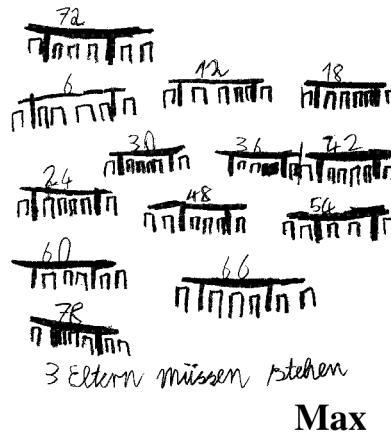 72
6 12 18
30 36 42
24 48 54
60 66
78
3 Eltern müssen stehen
Max